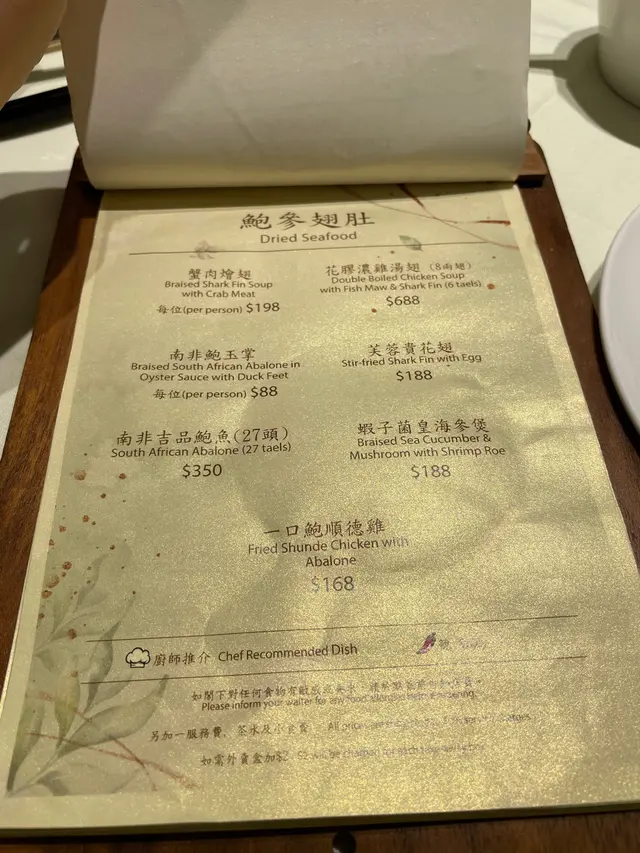 鮑參翅肚
Dried Seafood
蟹肉燴翅
Braised Shark Fin Soup
with Crab Meat
每位(per person) $198
花膠濃雞湯翅 (8兩翅)
Double Boiled Chicken Soup
with Fish Maw & Shark Fin (6 taels)
$688
南非鮑玉掌
Braised South African Abalone in
Oyster Sauce with Duck Feet
每位(per person) $88
芙蓉貴花翅
Stir-fried Shark Fin with Egg
$188
南非吉品鮑魚(27頭)
South African Abalone (27 taels)
$350
蝦子菌皇海參煲
Braised Sea Cucumber &
Mushroom with Shrimp Roe
$188
一口鮑順德雞
Fried Shunde Chicken with
Abalone
$168
廚師推介 Chef Recommended Dish
如閣下對任何食物有敏感
Please inform your waiter for any food
另加一服務費, 茶水及小食費 All prices
如需外賣盒加$2 will be charged for each